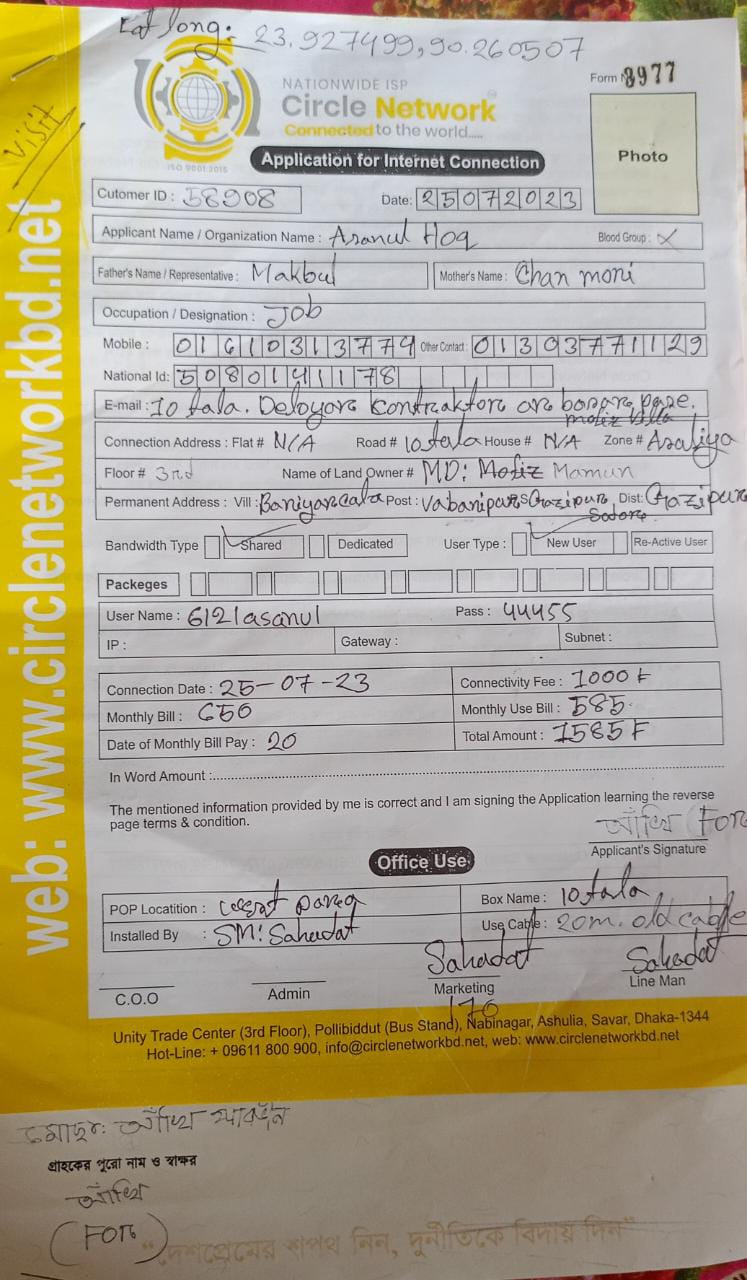 Lat long: 23.927499,90.260507
Form N 8977
NATIONWIDE ISP
Circle Network
Connected to the world.....
ISO 9001:2015
Application for Internet Connection
Photo
VISIT
web: www.circlenetworkbd.net
Cutomer ID : 58908 Date: 25072023
Applicant Name / Organization Name : Asanul Hoq Blood Group : X
Father's Name / Representative : Makbul Mother's Name : Chan moni
Occupation / Designation : Job
Mobile : 01610313774 Other Contact : 01303771129
National Id: 5080141178
E-mail : 10 tala. Deloyare kontraktore are basare pase.
mofiz villa
Connection Address : Flat # N/A Road # 10 tala House # N/A Zone # Asaliya
Floor # 3rd Name of Land Owner # MD: Mofiz Mamun
Permanent Address : Vill : Baniyarcala Post : Vabanipur S Gazipur Dist: Gazipur
Sadore
Bandwidth Type Shared Dedicated User Type : New User Re-Active User
Packeges
User Name : 6121asanul Pass : 44455
IP : Gateway : Subnet :
Connection Date : 25-07-23 Connectivity Fee : 1000 F
Monthly Bill : 650 Monthly Use Bill : 585
Date of Monthly Bill Pay : 20 Total Amount : 1585 F
In Word Amount :
The mentioned information provided by me is correct and I am signing the Application learning the reverse
page terms & condition.
আঁখি (For
Applicant's Signature
Office Use
POP Locatition : west para Box Name : 10 tala
Installed By : SM: Sahadat Use Cable : 20m. old cable
Sahadat Sahadat
C.O.O Admin Marketing Line Man
170
Unity Trade Center (3rd Floor), Pollibiddut (Bus Stand), Nabinagar, Ashulia, Savar, Dhaka-1344
Hot-Line: + 09611 800 900, info@circlenetworkbd.net, web: www.circlenetworkbd.net
আঁখি
গ্রাহকের পুরো নাম ও স্বাক্ষর
আঁখি
(For)
"দেশপ্রেমের শপথ নিন, দুর্নীতিকে বিদায় দিন"